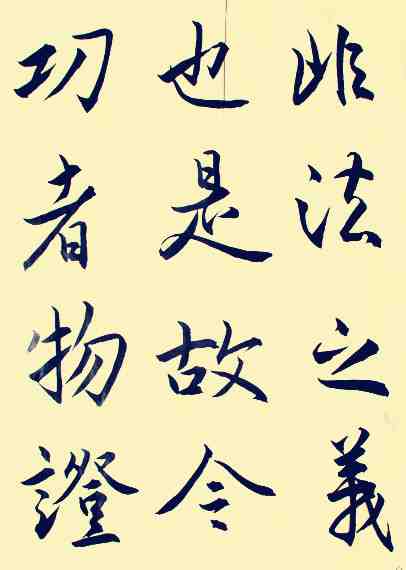 非法之義
也是故令
功者物證